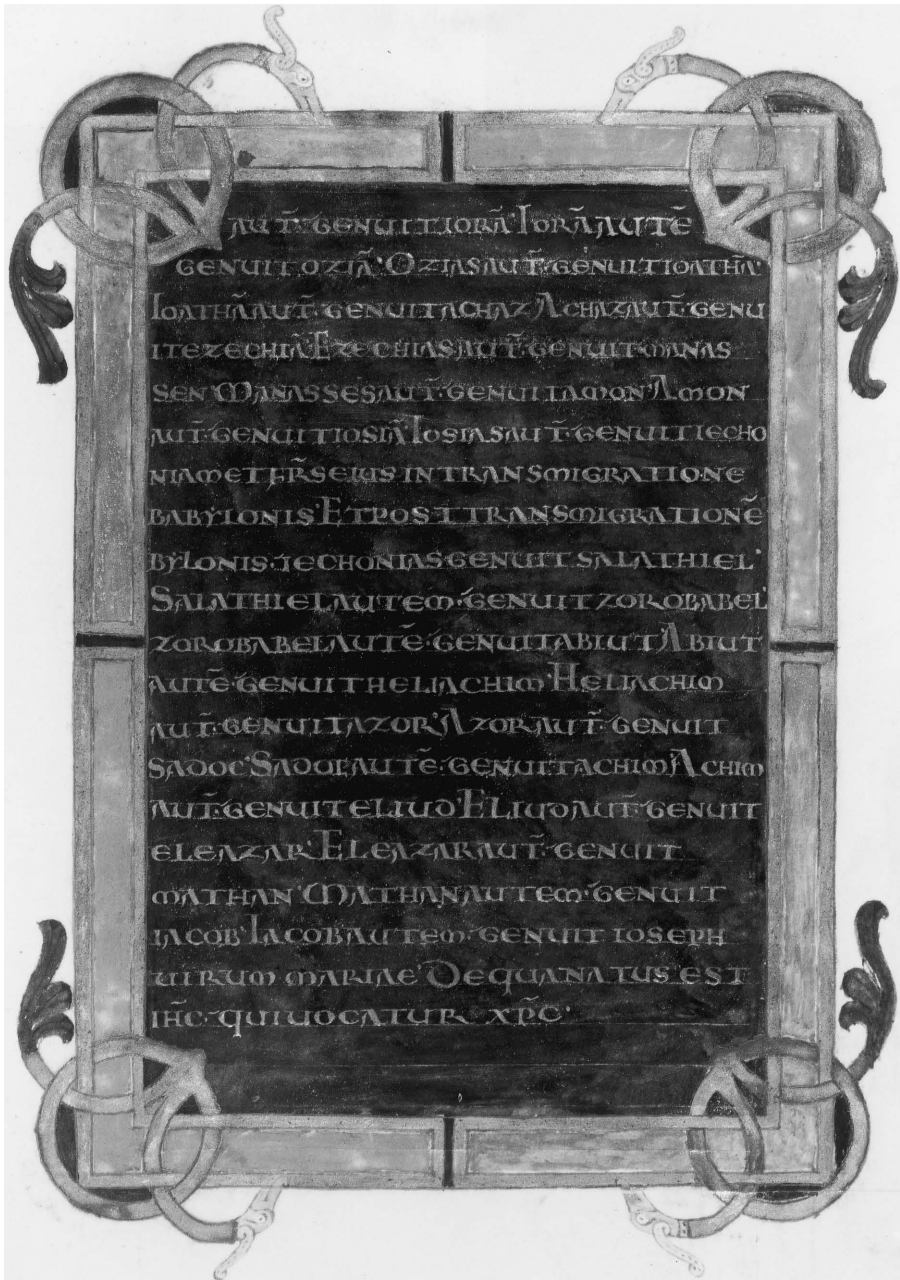 AUT̄· GENUIT IORĀ· IORĀ AUTĒ
GENUIT OZIĀ· OZIAS AUT̄· GENUIT IOATHĀ·
IOATHĀ AUT̄· GENUIT ACHAZ· ACHAZ AUT̄· GENU
IT EZECHIĀ· EZECHIAS AUT̄· GENUIT MANAS
SEN· MANASSES AUT̄· GENUIT AMON· AMON
AUT̄· GENUIT IOSIĀ· IOSIAS AUT̄· GENUIT IECHO
NIAM ET FR̄S EIUS IN TRANSMIGRATIONE
BABYLONIS· ET POST TRANSMIGRATIONĒ
BYLONIS· IECHONIAS GENUIT SALATHIEL·
SALATHIEL AUTEM· GENUIT ZOROBABEL·
ZOROBABEL AUTĒ· GENUIT ABIUT· ABIUT
AUTĒ· GENUIT HELIACHIM· HELIACHIM
AUT̄· GENUIT AZOR· AZOR AUT̄· GENUIT
SADOC· SADOC AUTĒ· GENUIT ACHIM· ACHIM
AUT̄· GENUIT ELIUD· ELIUD AUT̄· GENUIT
ELEAZAR· ELEAZAR AUT̄· GENUIT
MATHAN· MATHAN AUTEM· GENUIT
IACOB· IACOB AUTEM· GENUIT IOSEPH
UIRUM MARIAE· DE QUA NATUS EST
IH̄C· QUI UOCATUR XP̄C·